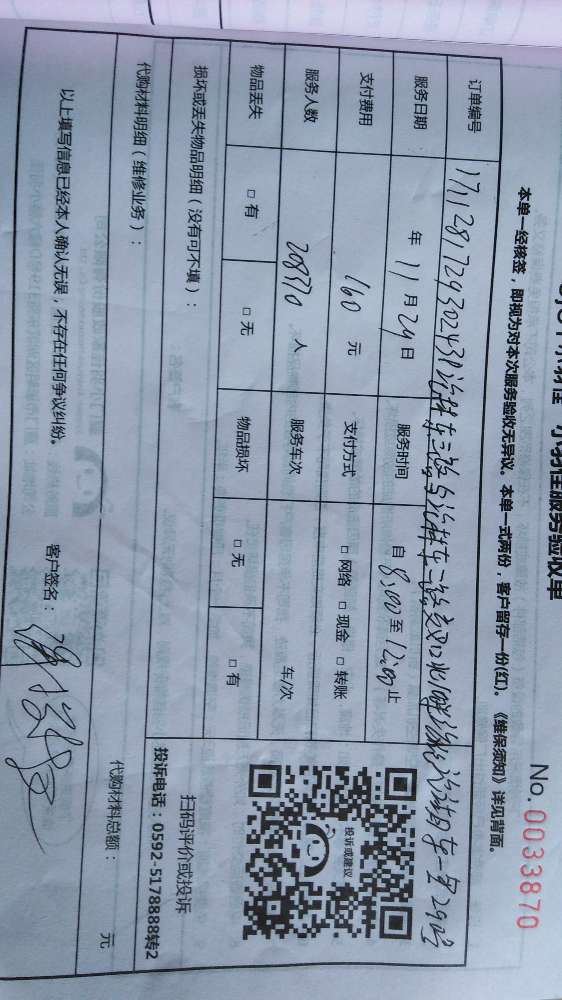 小羽佳服务验收单
No. 0033870
本单一经核签，即视为对本次服务验收无异议。本单一式两份，客户留存一份(红)。《维保须知》详见背面。
订单编号
服务日期 年 11 月 29 日 服务时间 自 8:00 至 12:00 止
支付费用 160 元 支付方式 □ 网络 □ 现金 □ 转账
服务人数 208770 人 服务车次 车/次
物品丢失 □ 有 □ 无 物品损坏 □ 无 □ 有
损坏或丢失物品明细（没有可不填）：
投诉或建议
扫码评价或投诉
投诉电话：0592-5178888转2
代购材料明细（维修业务）：
代购材料总额： 元
以上填写信息已经本人确认无误，不存在任何争议纠纷。 客户签名：